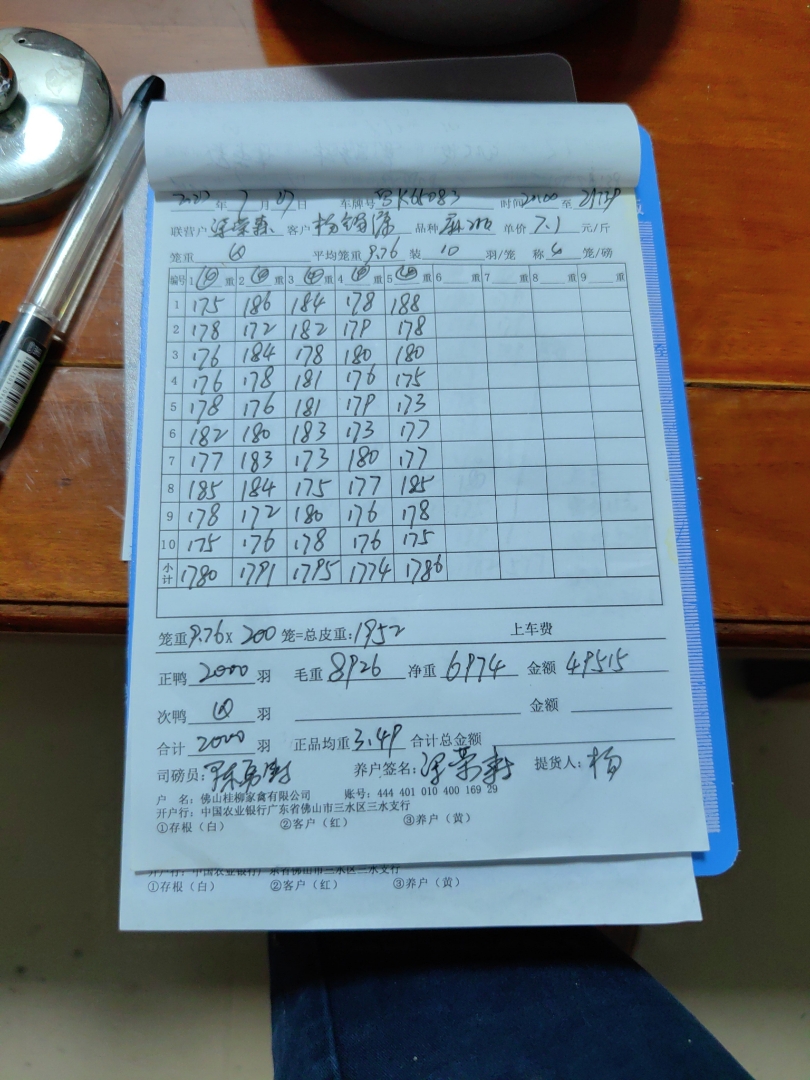 年 7 月 09 日 车牌号 K65083 时间 20:00 至
联营户 梁荣森 客户 杨锦 品种 单价 7.1 元/斤
笼重 平均笼重 9.76 装 10 羽/笼 称 4 笼/磅
编号 1 重 2 重 3 重 4 重 5 重 6 重 7 重 8 重 9 重
1 175 186 184 178 188
2 178 172 182 179 178
3 176 184 178 180 180
4 176 178 181 176 175
5 178 176 181 179 173
6 182 180 183 173 177
7 177 183 173 180 177
8 185 184 175 177 185
9 178 172 180 176 178
10 175 176 178 176 175
小计 1780 1791 1795 1774 1786
笼重 9.76 x 200 笼=总皮重: 1952 上车费
正鸭 2000 羽 毛重 8926 净重 6974 金额 49515
次鸭 羽 金额
合计 2000 羽 正品均重 3.49 合计总金额
司磅员: 养户签名: 梁荣 提货人: 杨
户 名: 佛山桂柳家禽有限公司 账号: 444 401 010 400 169 29
开户行: 中国农业银行广东省佛山市三水区三水支行
①存根（白） ②客户（红） ③养户（黄）
开户行: 中国农业银行广东省佛山市三水区三水支行
①存根（白） ②客户（红） ③养户（黄）